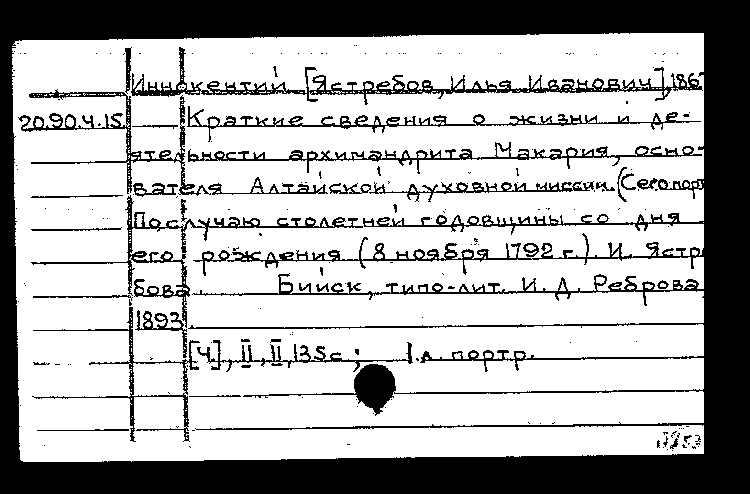 Иннокентий [Ястребов, Илья Иванович], 1867
20.90.4.15. Краткие сведения о жизни и де-
ятельности архимандрита Макария, осно-
вателя Алтайской духовной миссии. (С его порт
По случаю столетней годовщины со дня
его рождения (8 ноября 1792 г.). И. Ястре
бова. Бийск, типо-лит. И. Д. Реброва,
1893.
[4], II, II, 135 с.; 1 л. портр.